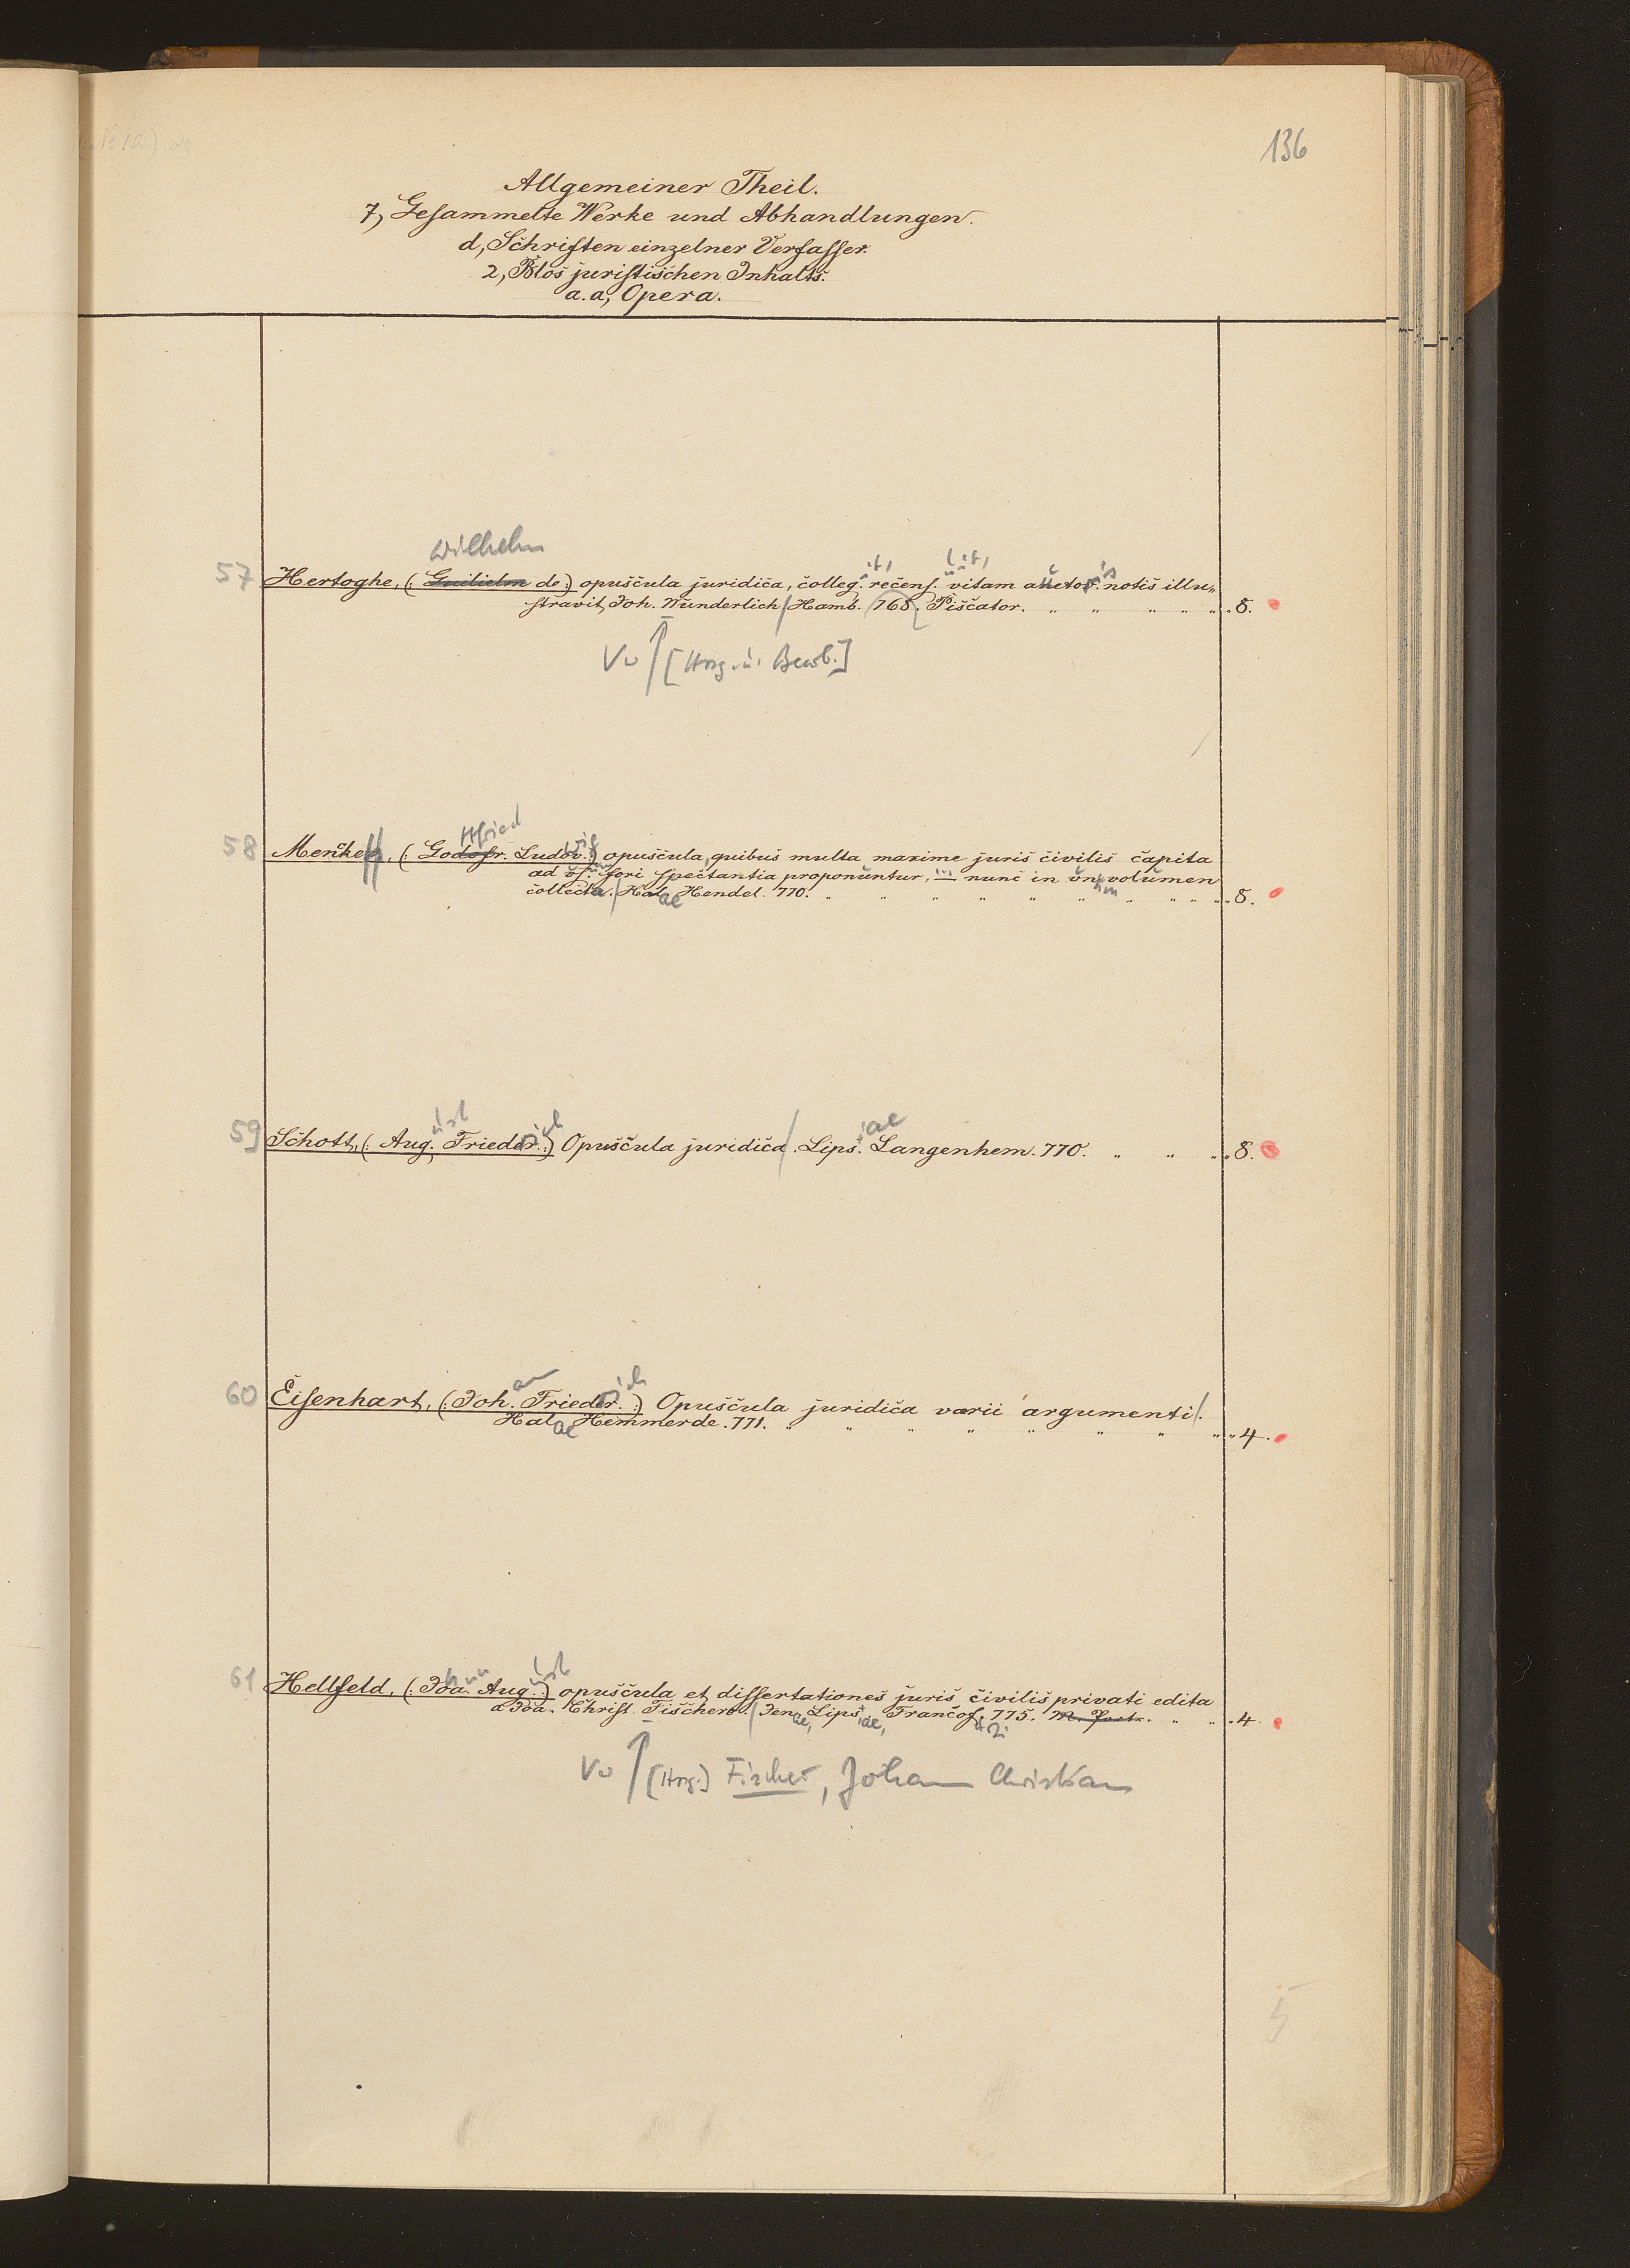 136
Allgemeiner Theil.
7, Gesammelte Werke und Abhandlungen.
d, Schriften einzelner Verfasser.
2, Blos juristischen Inhalts.
a.a, Opera.
Wilhelm
57 Hertoghe, (: Guilielm de :) opuscula juridica, colleg. recens. vitam auctor. notis illu„
stravit Joh. Wunderlich / Hamb. 768. Piscator. „ „ „ „ „ „ 8.
Vw [Hrsg. u. Bearb.]
ttfried
58 Mencke, (: Godofr. Ludov. :) opuscula, quibus multa maxime juris civilis capita
ad us. fori spectantia proponuntur, nunc in un. volumen
collecta. / Halae Hendel. 770. „ „ „ „ „ „ „ „ „ „ 8.
59 Schott, (: Aug. Frieder. :) Opuscula juridica / Lips. Langenhem. 770. „ „ „ 8.
60 Eisenhart, (: Joh. Frieder. :) Opuscula juridica varii argumenti /.
Halae Hemmerde. 771. „ „ „ „ „ „ „ „ „ 4.
61 Hellfeld, (: Joa. Aug. :) opuscula et dissertationes juris civilis privati edita
a Joa. Christ. Fischero. / Jenae, Lipsiae, Francof. 775. „ „ 4.
Vw [Hrsg.] Fischer, Johann Christian